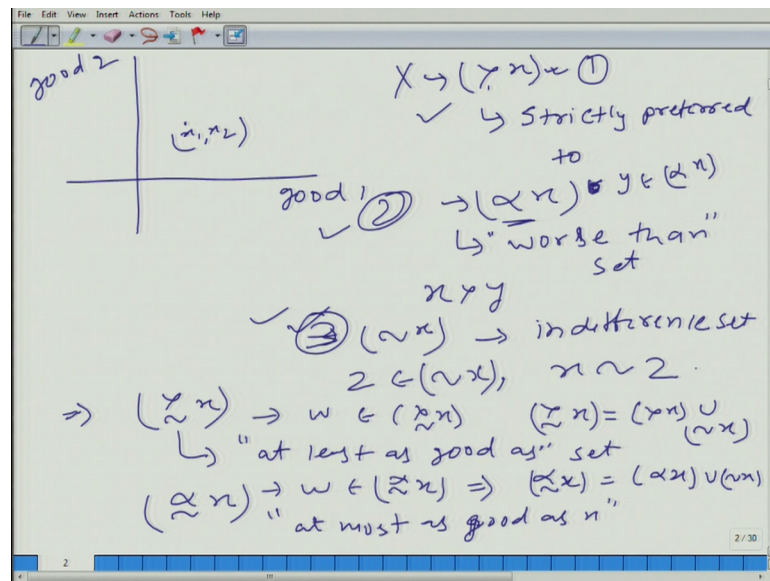 File Edit View Insert Actions Tools Help
good 2
X → (≻ x) ~ ①
↳ strictly preferred
to
(x₁, x₂)
good 1
② → (≺ x) y ∈ (≺ x)
↳ "worse than"
set
x ≻ y
③ (~ x) → indifference set
z ∈ (~ x), x ~ z.
⇒ (≿ x) → w ∈ (≿ x) (≿ x) = (≻ x) ∪
(~ x)
↳ "at least as good as" set
(≾ x) → w ∈ (≾ x) ⇒ (≾ x) = (≺ x) ∪ (~ x)
"at most as good as x"
2 / 30
2